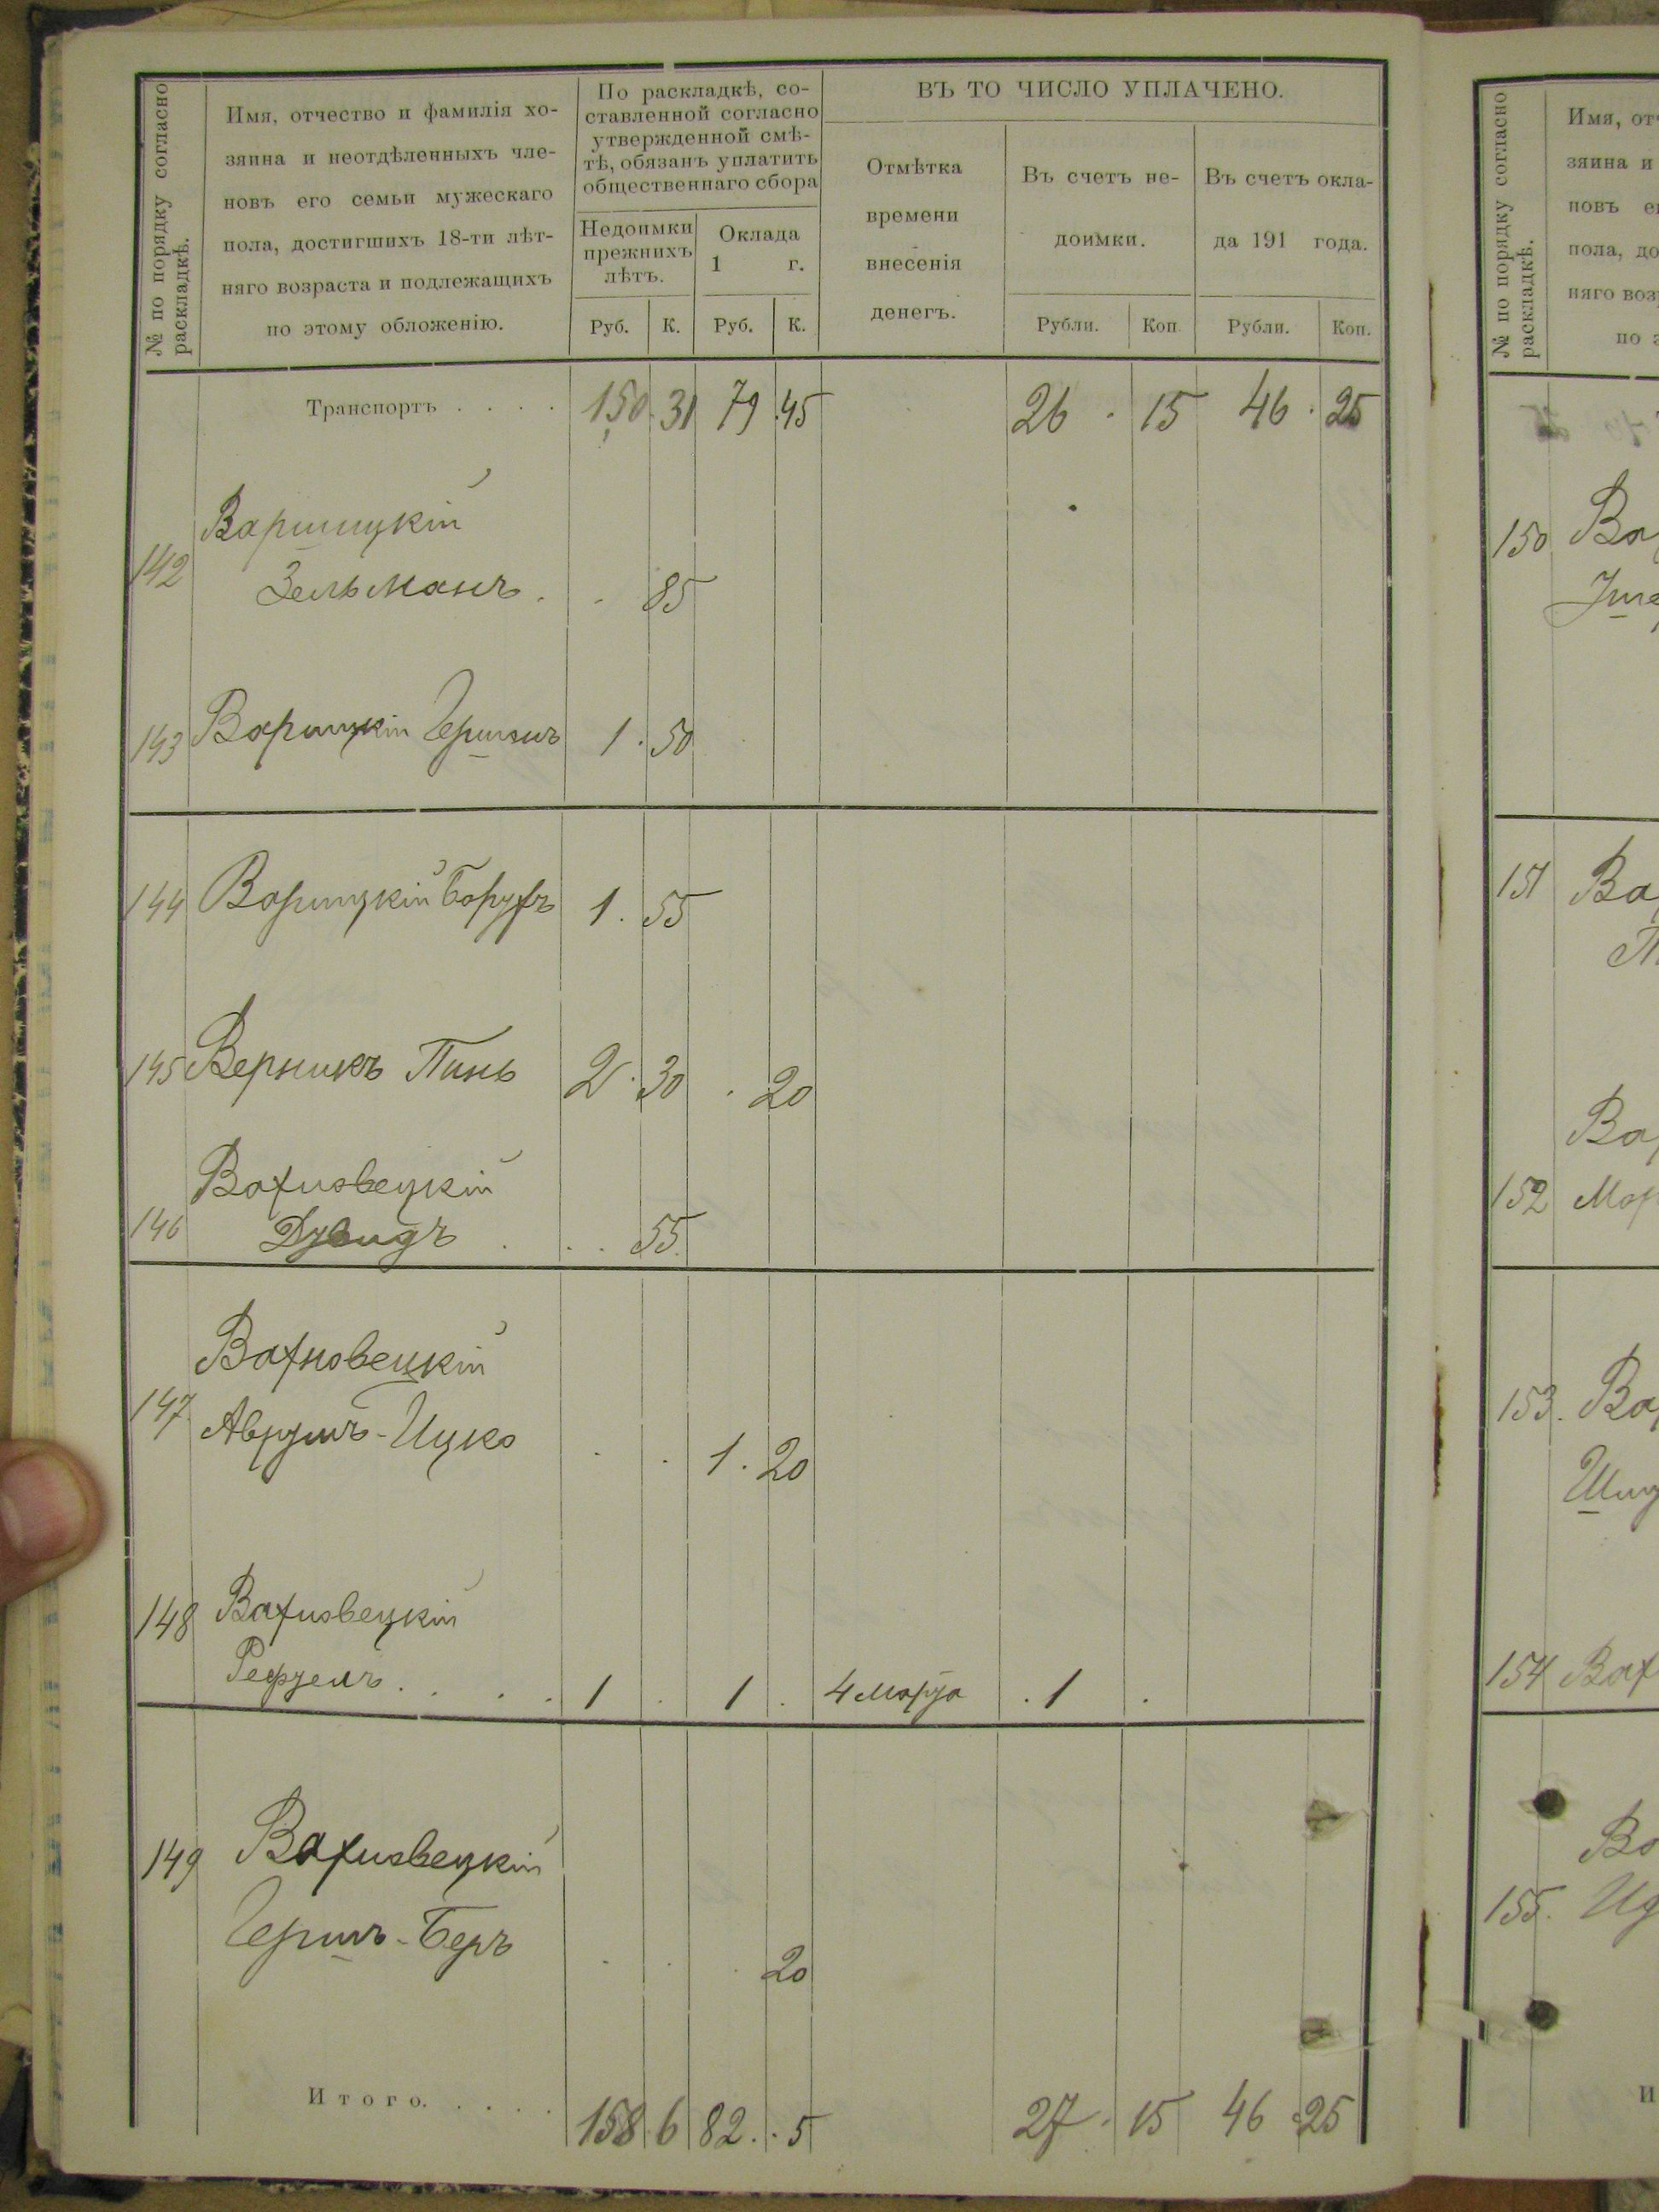 № по порядку согласно
раскладкѣ.
Имя, отчество и фамилія хо-
зяина и неотдѣленныхъ чле-
новъ его семьи мужескаго
пола, достигшихъ 18-ти лѣт-
няго возраста и подлежащихъ
по этому обложенію.
По раскладкѣ, со-
ставленной согласно
утвержденной смѣ-
тѣ, обязанъ уплатить
общественнаго сбора
Недоимки
прежнихъ
лѣтъ.
Оклада
1 г.
Руб. К. Руб. К.
ВЪ ТО ЧИСЛО УПЛАЧЕНО.
Отмѣтка
времени
внесенія
денегъ.
Въ счетъ не-
доимки.
Въ счетъ окла-
да 191 года.
Рубли. Коп. Рубли. Коп.
Транспортъ . . . . 150 31 79 45 26 15 46 25
Варшицкій
142 Зельманъ . 85
143 Варшицкій Гершонъ 1 50
144 Варшицкій Борухъ 1 55
145 Верникъ Пинь 2 30 20
Вахновецкій
146 Дувидъ . 55
Вахновецкій
147 Аврумъ-Ицко 1 20
148 Вахновецкій
Рефуелъ . . . . 1 1 4 марта 1
149 Вахновецкій
Гершъ-Беръ 20
Итого. . . . . 158 6 82 5 27 15 46 25
№ по порядку согласно
раскладкѣ.
Имя, отч
зяина и
новъ
пола, до
няго воз
по
150
151
152
153.
154
155.